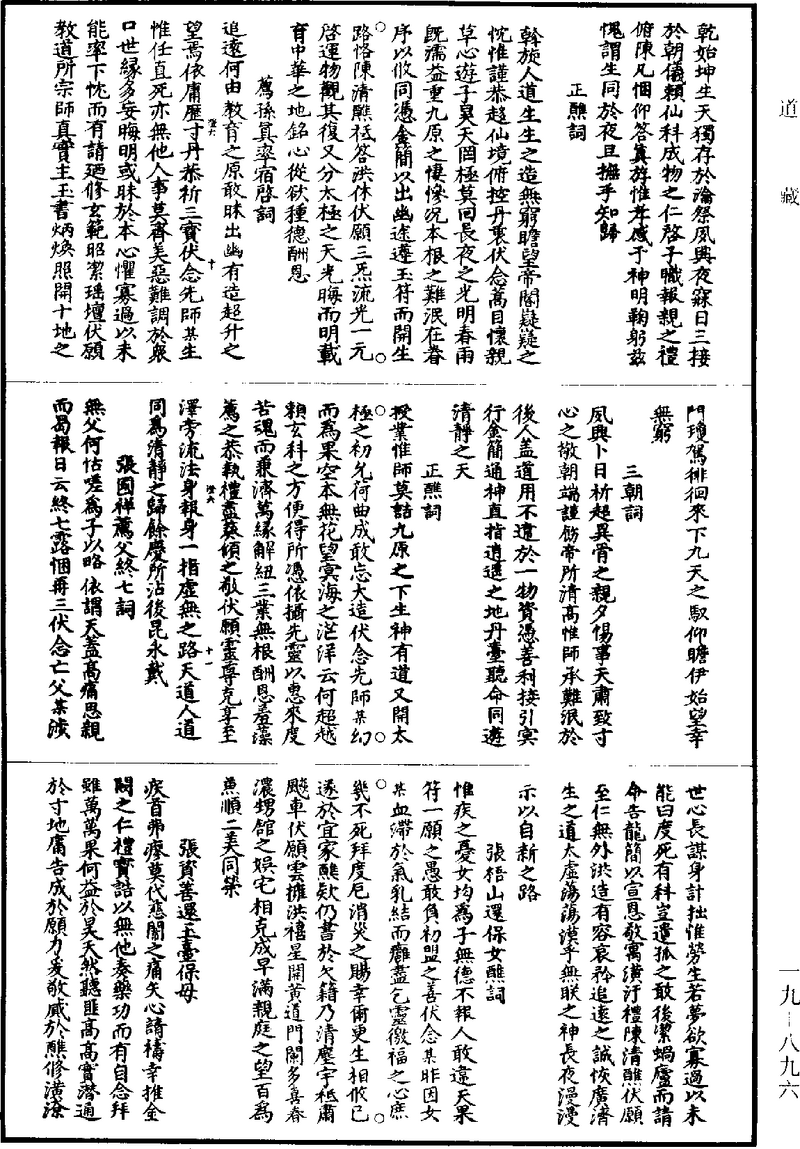 道藏
乾始坤生天獨存於瀹祭夙興夜寐日三接
於朝儀賴仙科成物之仁啓子職報親之禮
俯陳凡悃仰答真游惟孝感于神明鞠躬兹
愧謂生同於夜旦撫乎知歸
正醮詞
斡旋人道生生之造無窮瞻望帝閽嶷嶷之
忱惟謹恭趨仙境俯控丹衷伏念蒿目懷親
草心遊子昊天罔極莫回長夜之光明春雨
既濡益重九原之悽慘況本根之難泯在眷
序以攸同憑金簡以出幽途遵玉符而開生
路恪陳清醮祗答洪休伏願三炁流光一元
啓運物觀其復又分太極之天光晦而明載
育中華之地銘心從欲種德酬恩
薦孫員率宿啓詞
追遠何由教育之原敢昧出幽有造超升之
望焉依庸歷寸丹恭祈三寶伏念先師某生
惟任直死亦無他人事莫齊美惡難調於衆
口世緣多妄晦明或昧於本心懼寡過以未
能率下忱而有請廼修玄範昭潔瑶壇伏願
教道所宗師真實主玉書炳煥照開十地之
門瓊駕徘徊來下九天之馭仰瞻伊始望幸
無窮
三朝詞
夙興卜日祈超異骨之親夕惕事天肅致寸
心之敬朝端謹飭帝所清高惟師承難泯於
後人盖道用不遺於一物資憑善利接引冥
行金簡通神直指逍遥之地丹臺聽命同遊
清靜之天
正醮詞
授業惟師莫詰九原之下生神有道又開太
極之初允荷曲成敢忘大造伏念先師某幻
而爲果空本無花望冥海之茫洋云何超越
賴玄科之方便得所憑依攝先靈以惠來度
苦魂而兼濟萬緣解紐三業無根酬恩羞藻
薦之恭執禮盡葵傾之敬伏願靈尊克享至
澤旁流法身報身一指虛無之路天道人道
同爲清靜之歸餘慶所沾後昆永戴
張國祥薦父終七詞
無父何怙嗟爲子以略依謂天盖高痛思親
而曷報日云終七露悃再三伏念亡父某涉
世心長謀身計拙惟勞生若夢欲寡過以未
能曰度死有科豈遺孤之敢後潔蝸廬而請
命告龍簡以宣恩敬寓潢汙禮陳清醮伏願
至仁無外洪造有容哀矜追遠之誠恢廣濟
生之道太虛蕩蕩漠乎無朕之神長夜漫漫
示以自新之路
張梧山還保女醮詞
惟疾之憂女均爲子無德不報人敢違天果
符一願之愚敢負初盟之善伏念某昨因女
某血滯於氣乳結而癰蓋乞靈徼福之心庶
幾不死拜度厄消災之賜幸爾更生相攸已
遂於宜家醮欵仍書於欠籍乃清塵宇祗肅
飈車伏願雲擁洪禧星開黄道門闌多喜春
濃甥館之娱宅相克成早滿親庭之望百爲
魚順二美同榮
張資善還玉臺保母
疾首弗瘳莫代悲閽之痛矢心請禱幸推金
闕之仁禮實諮以無他奏藥功而有自念拜
雖萬萬果何益於昊天然聽匪高高實潛通
於寸地庸告成於願力爰敬感於醮修潢潦
一九－八九六